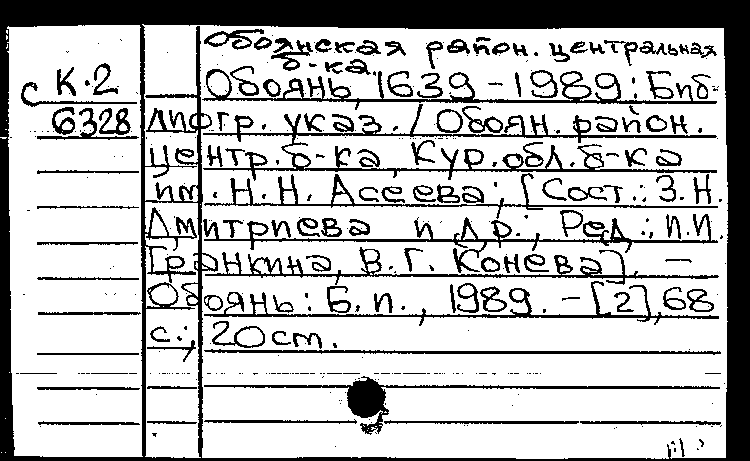 Обоянская район. центральная
б-ка.
с К.2
6328
Обоянь, 1639-1989: Биб-
лиогр. указ. / Обоян. район.
центр. б-ка, Кур. обл. б-ка
им. Н.Н. Асеева; [Сост.: З.Н.
Дмитриева и др.; Ред.:
Гранкина, В.Г. Конева]. -
Обоянь: Б.и., 1989. - [2], 68
с.; 20 см.